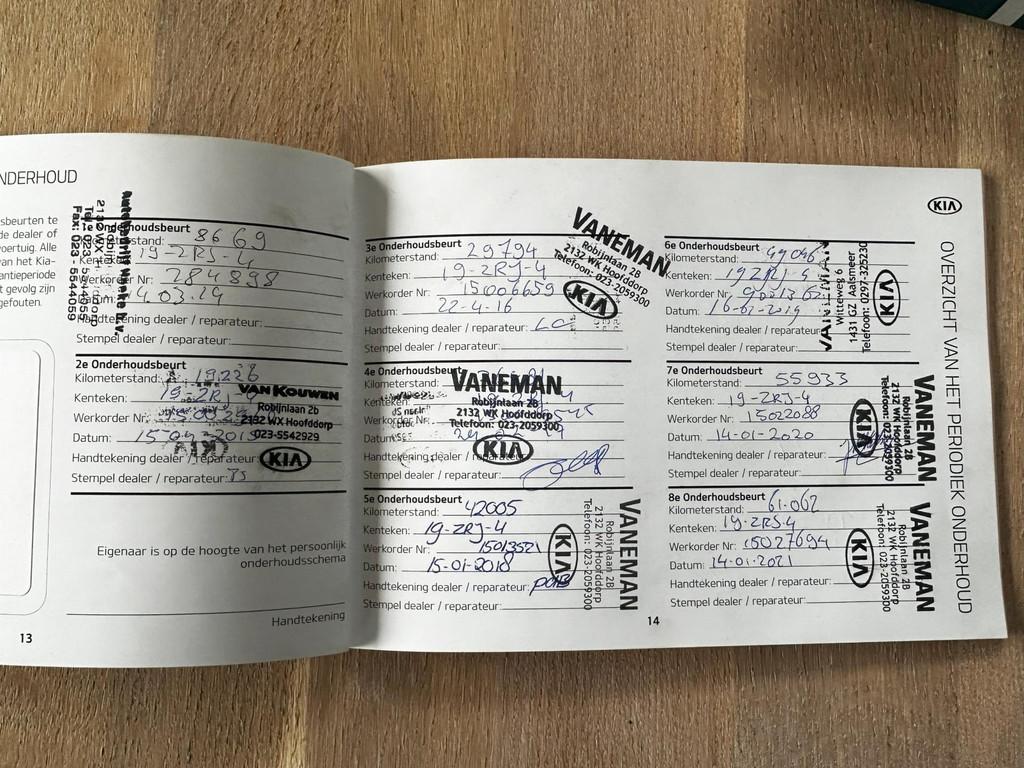 NDERHOUD
sbeurten te
de dealer of
voertuig. Alle
van het Kia-
antieperiode
t gevolg zijn
gefouten.
Onderhoudsbeurt
8669
19-ZRJ-4
Werkorder Nr: 284898
14.03.14
Handtekening dealer / reparateur:
Stempel dealer / reparateur:
Tel: 023 - 5544455
Fax: 023 - 5544059
2e Onderhoudsbeurt
Kilometerstand: 19226
Kenteken: 19-ZRJ-4
Werkorder Nr:
Datum: 15
Handtekening dealer / reparateur
Stempel dealer / reparateur:
VAN KOUWEN
Robijnlaan 2b
2132 WX Hoofddorp
023-5542929
KIA
Eigenaar is op de hoogte van het persoonlijk
onderhoudsschema
Handtekening
13
3e Onderhoudsbeurt
Kilometerstand: 29794
Kenteken: 19-ZRJ-4
Werkorder Nr: 15006659
Datum: 22-4-16
Handtekening dealer / reparateur:
Stempel dealer / reparateur:
VANEMAN
Robijnlaan 2B
2132 WK Hoofddorp
Telefoon: 023-2059300
KIA
4e Onderhoudsbeurt
Kilometerstand:
Kenteken:
Werkorder Nr:
Datum:
Handtekening dealer / reparateur:
Stempel dealer / reparateur:
VANEMAN
Robijnlaan 2B
2132 WK Hoofddorp
Telefoon: 023-2059300
KIA
5e Onderhoudsbeurt
Kilometerstand: 42005
Kenteken: 19-ZRJ-4
Werkorder Nr: 15013521
Datum: 15-01-2018
Handtekening dealer / reparateur:
Stempel dealer / reparateur:
VANEMAN
Robijnlaan 2B
2132 WK Hoofddorp
Telefoon: 023-2059300
KIA
14
KIA
6e Onderhoudsbeurt
Kilometerstand: 49046
Kenteken: 19ZRJ-4
Werkorder Nr: 9001362
Datum: 16-01-2019
Handtekening dealer / reparateur:
Stempel dealer / reparateur:
Witteweg 6
1431 GZ Aalsmeer
Telefoon: 0297-325230
KIA
7e Onderhoudsbeurt
Kilometerstand: 55933
Kenteken: 19-ZRJ-4
Werkorder Nr: 15022088
Datum: 14-01-2020
Handtekening dealer / reparateur:
Stempel dealer / reparateur:
VANEMAN
Robijnlaan 2B
2132 WK Hoofddorp
Telefoon: 023-2059300
KIA
8e Onderhoudsbeurt
Kilometerstand: 61.062
Kenteken: 19-ZRS-4
Werkorder Nr: 15027694
Datum: 14-01-2021
Handtekening dealer / reparateur:
Stempel dealer / reparateur:
VANEMAN
Robijnlaan 2B
2132 WK Hoofddorp
Telefoon: 023-2059300
KIA
OVERZICHT VAN HET PERIODIEK ONDERHOUD